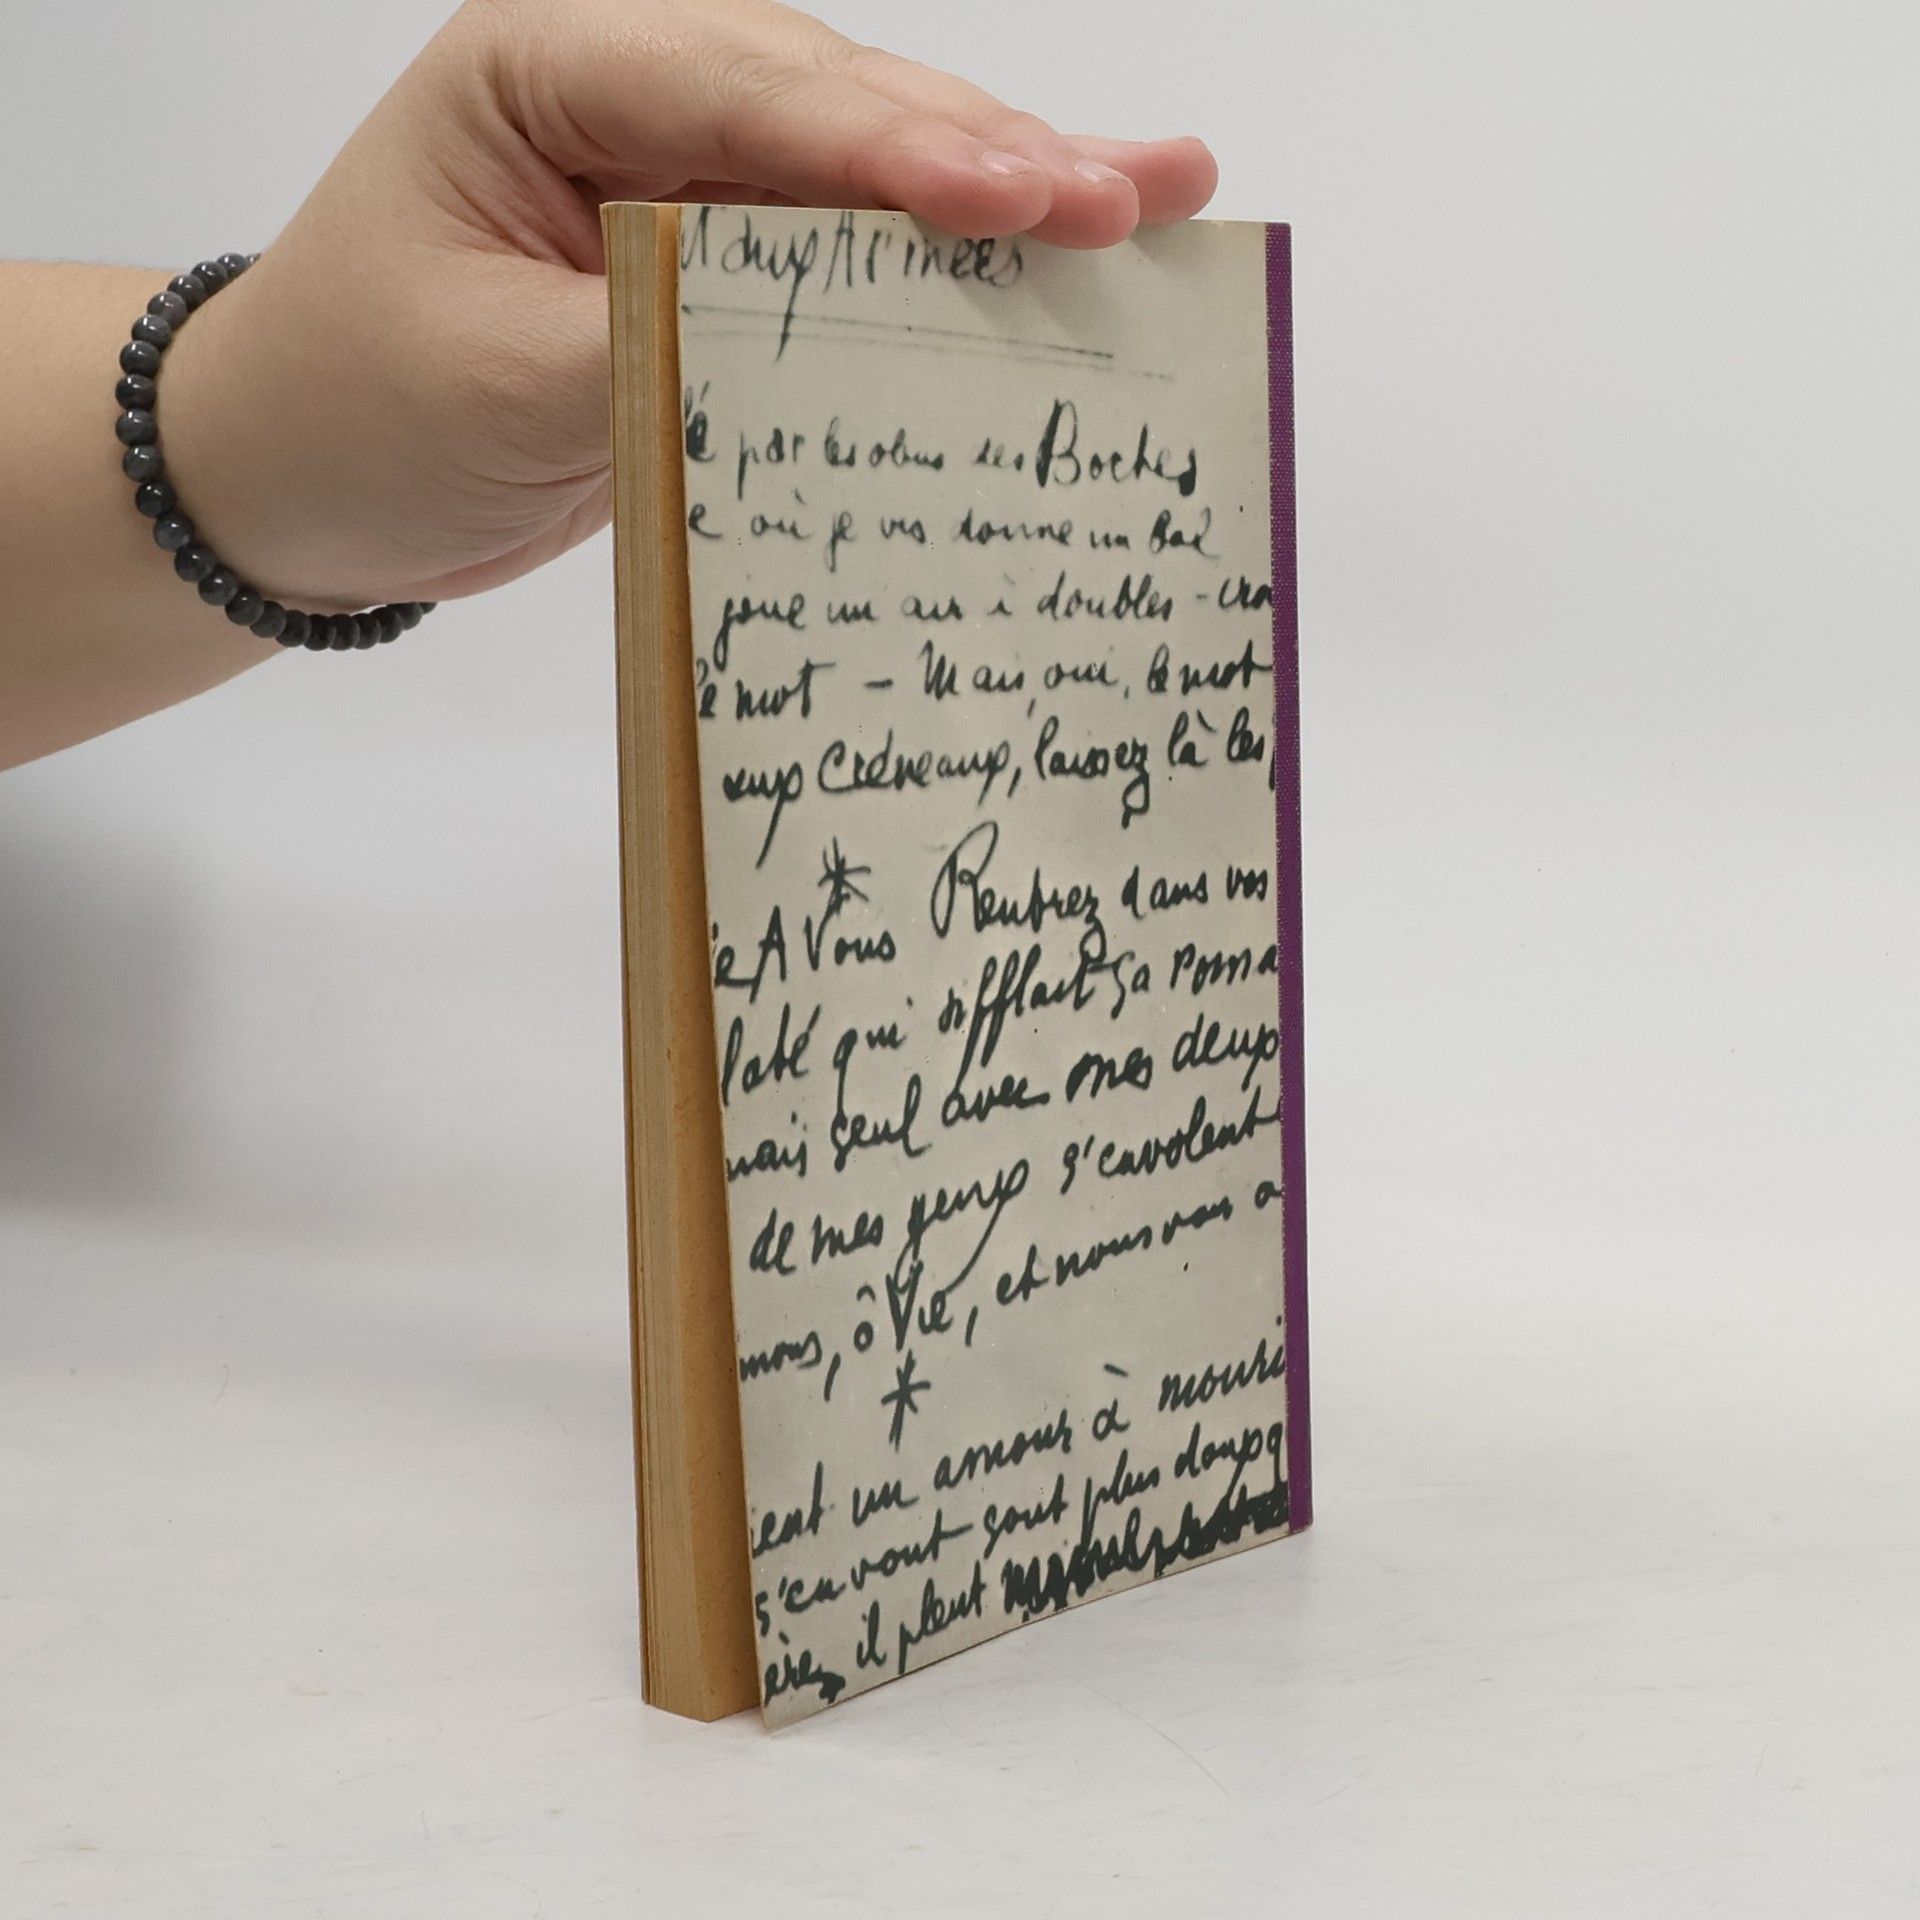 t aux Armées
lé par les obus des Boches
e où je vis donne un bal
joue un air à doubles-cro
le mot - Mais oui, le mot
aux Créneaux, laissez là les
*
e A Vous Rentrez dans vos
laté qui sifflait sa roma
mais seul avec mes deux
de mes yeux s'envolent
mons, ô Vie, et nous von a
*
ient un amour à mouri
s'en vont sont plus doux q
érez il pleut